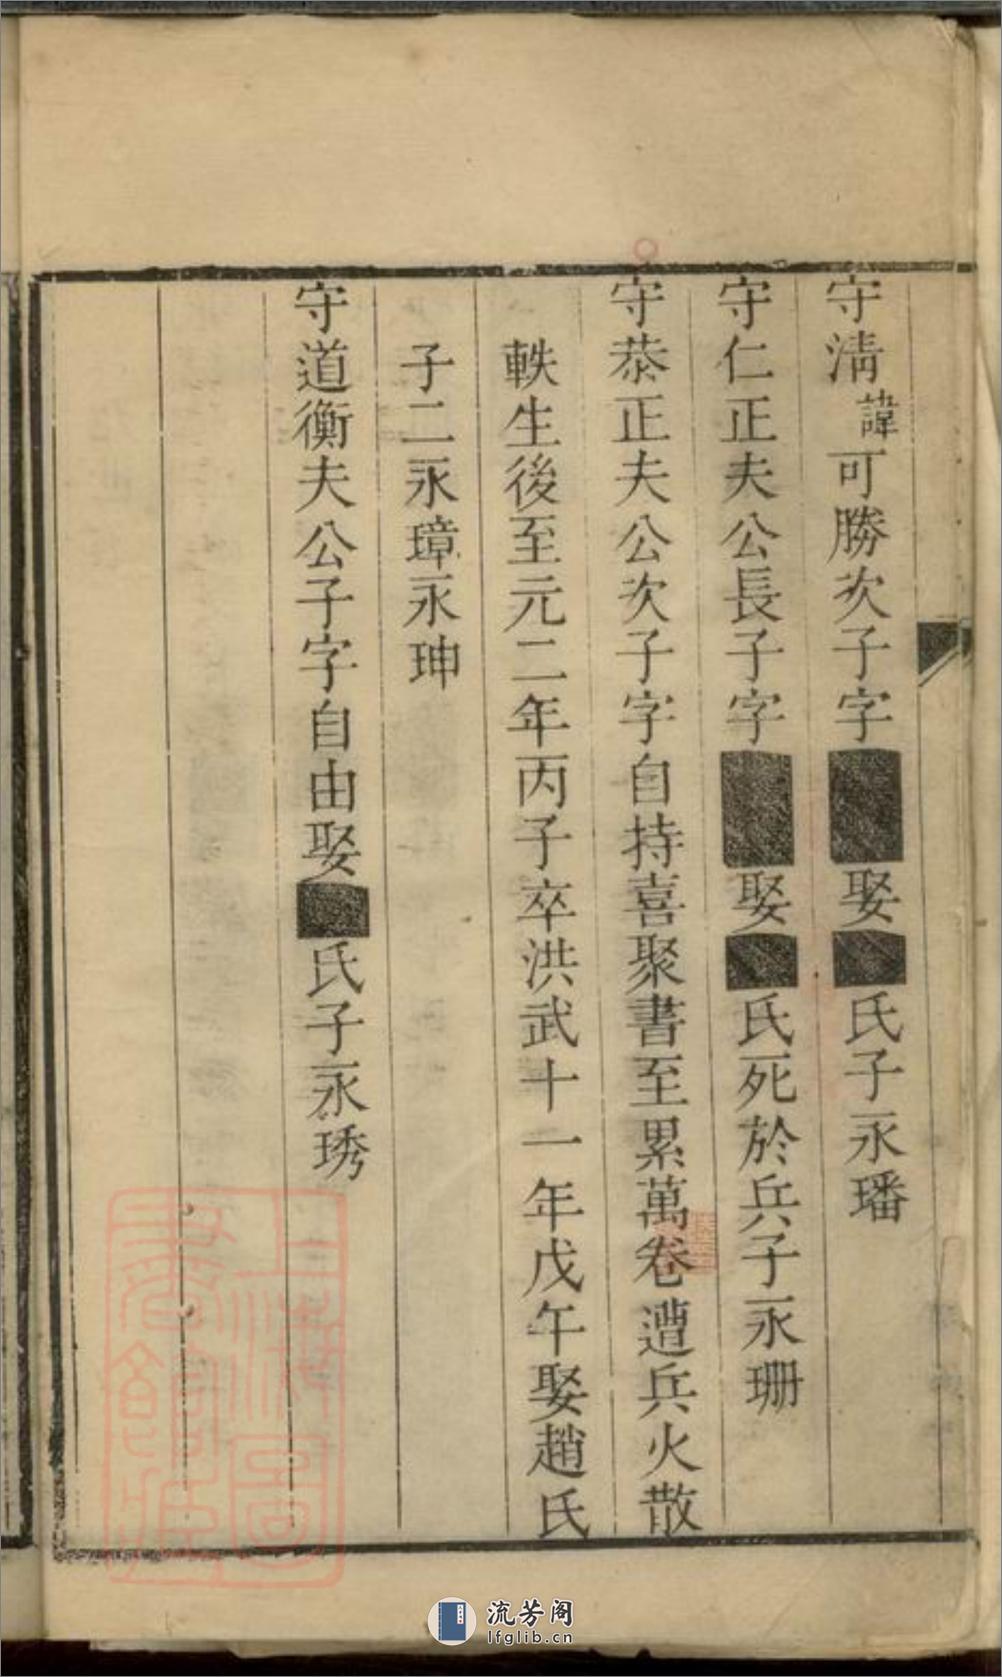 守淸諱可勝次子字■■娶■氏子永璠
守仁正夫公長子字■■娶■氏死於兵子永珊
守恭正夫公次子字自持喜聚書至累萬卷遭兵火散
軼生後至元二年丙子卒洪武十一年戊午娶趙氏
子二永璋永珅
守道衡夫公子字自由娶■氏子永琇
上海圖書館藏
流芳阁
lfglib.cn